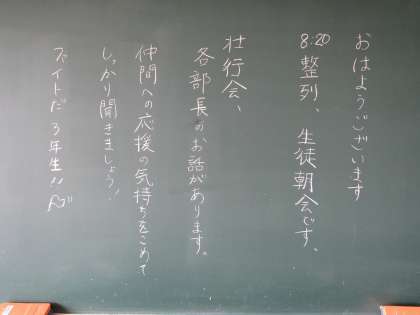 おはようございます
8:20 整列、生徒朝会です、
壮行会、
各部長のお話があります。
仲間への応援の気持ちをこめて
しっかり聞きましょう!
ズイトだ 3年生!!